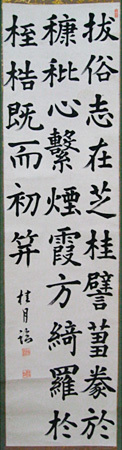 拔俗志在芝桂譬蒭豢於
穅秕心繫煙霞方綺羅於
桎梏既而初笄
桂月臨